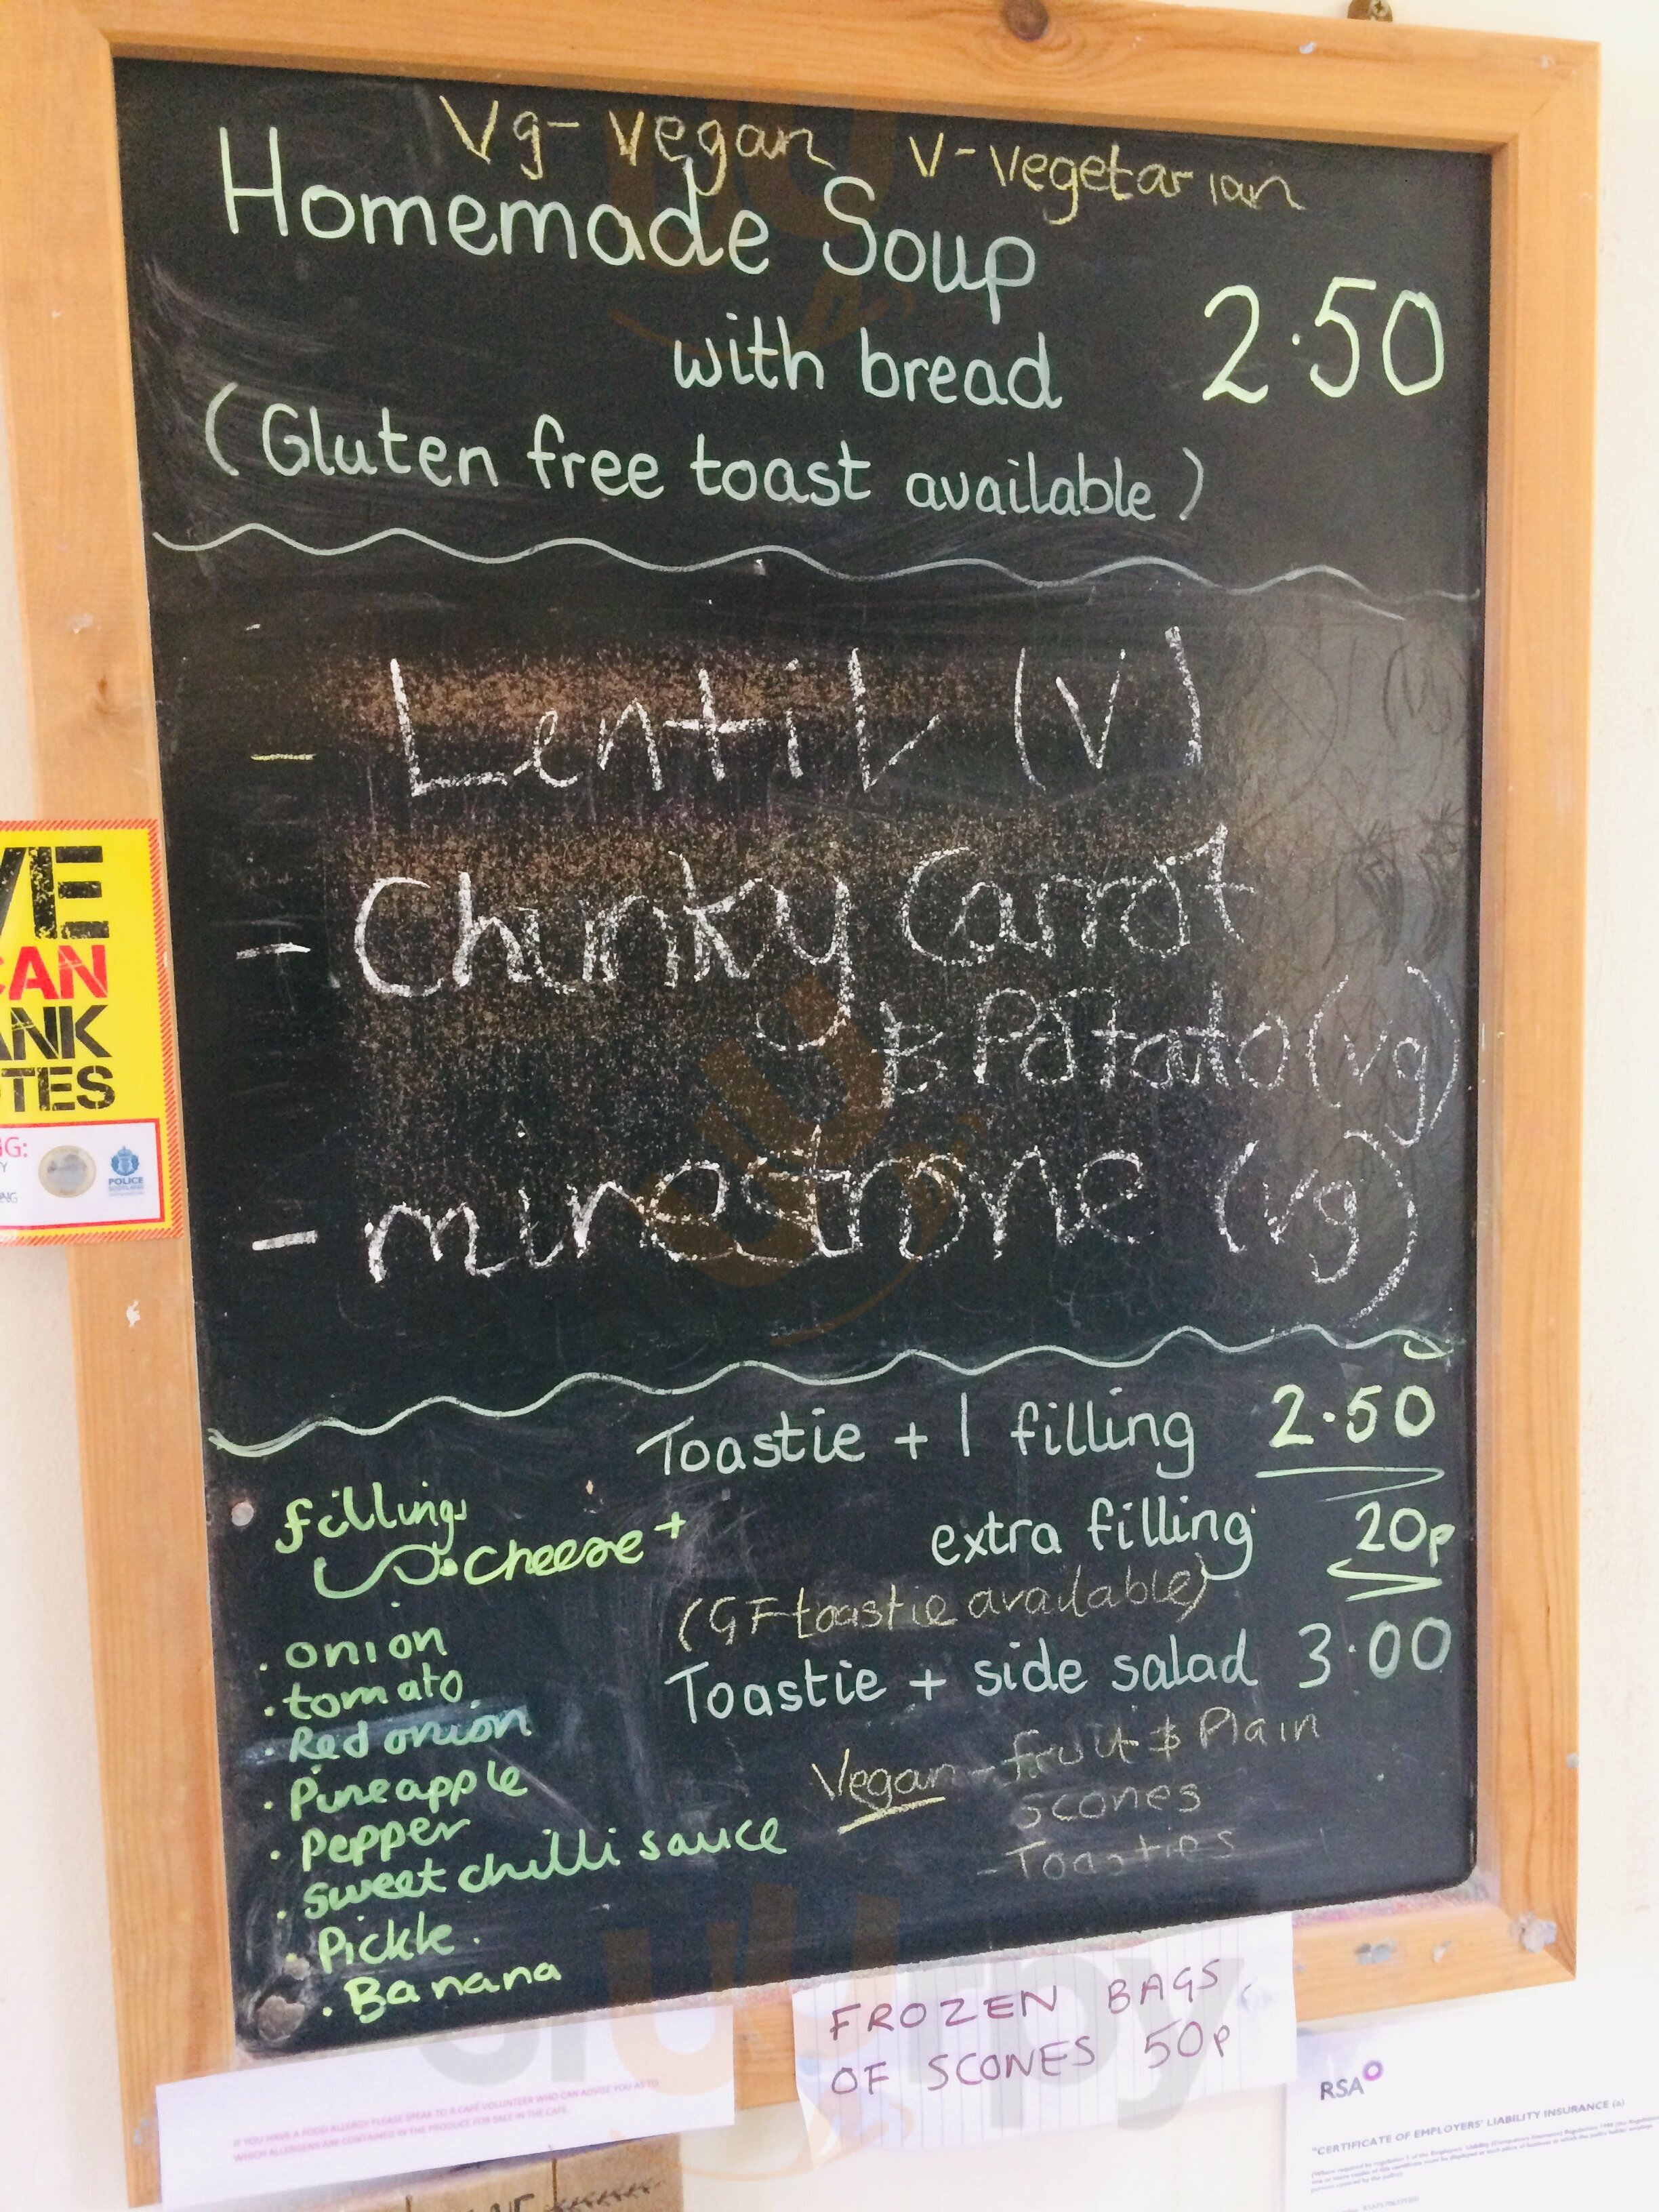 Vg - Vegan V - Vegetarian
Homemade Soup
with bread 2.50
(Gluten free toast available)
- Lentil (V)
- Chunky Carrot
& Potato (vg)
- minestrone (vg)
Toastie + 1 filling 2.50
extra filling 20p
(GF toastie available)
Toastie + side salad 3.00
Vegan - fruit & Plain
scones
- Toasties
fillings
• Cheese +
• onion
• tomato
• Red onion
• Pineapple
• Pepper
• sweet chilli sauce
• Pickle
• Banana
FROZEN BAGS
OF SCONES 50p
VE
CAN
ANK
OTES
NG:
POLICE
SCOTLAND
IF YOU HAVE A FOOD ALLERGY PLEASE SPEAK TO A CAFÉ VOLUNTEER WHO CAN ADVISE YOU AS TO
WHICH ALLERGENS ARE CONTAINED IN THE PRODUCE FOR SALE IN THE CAFÉ.
RSA
"CERTIFICATE OF EMPLOYERS' LIABILITY INSURANCE (a)
sluurpy